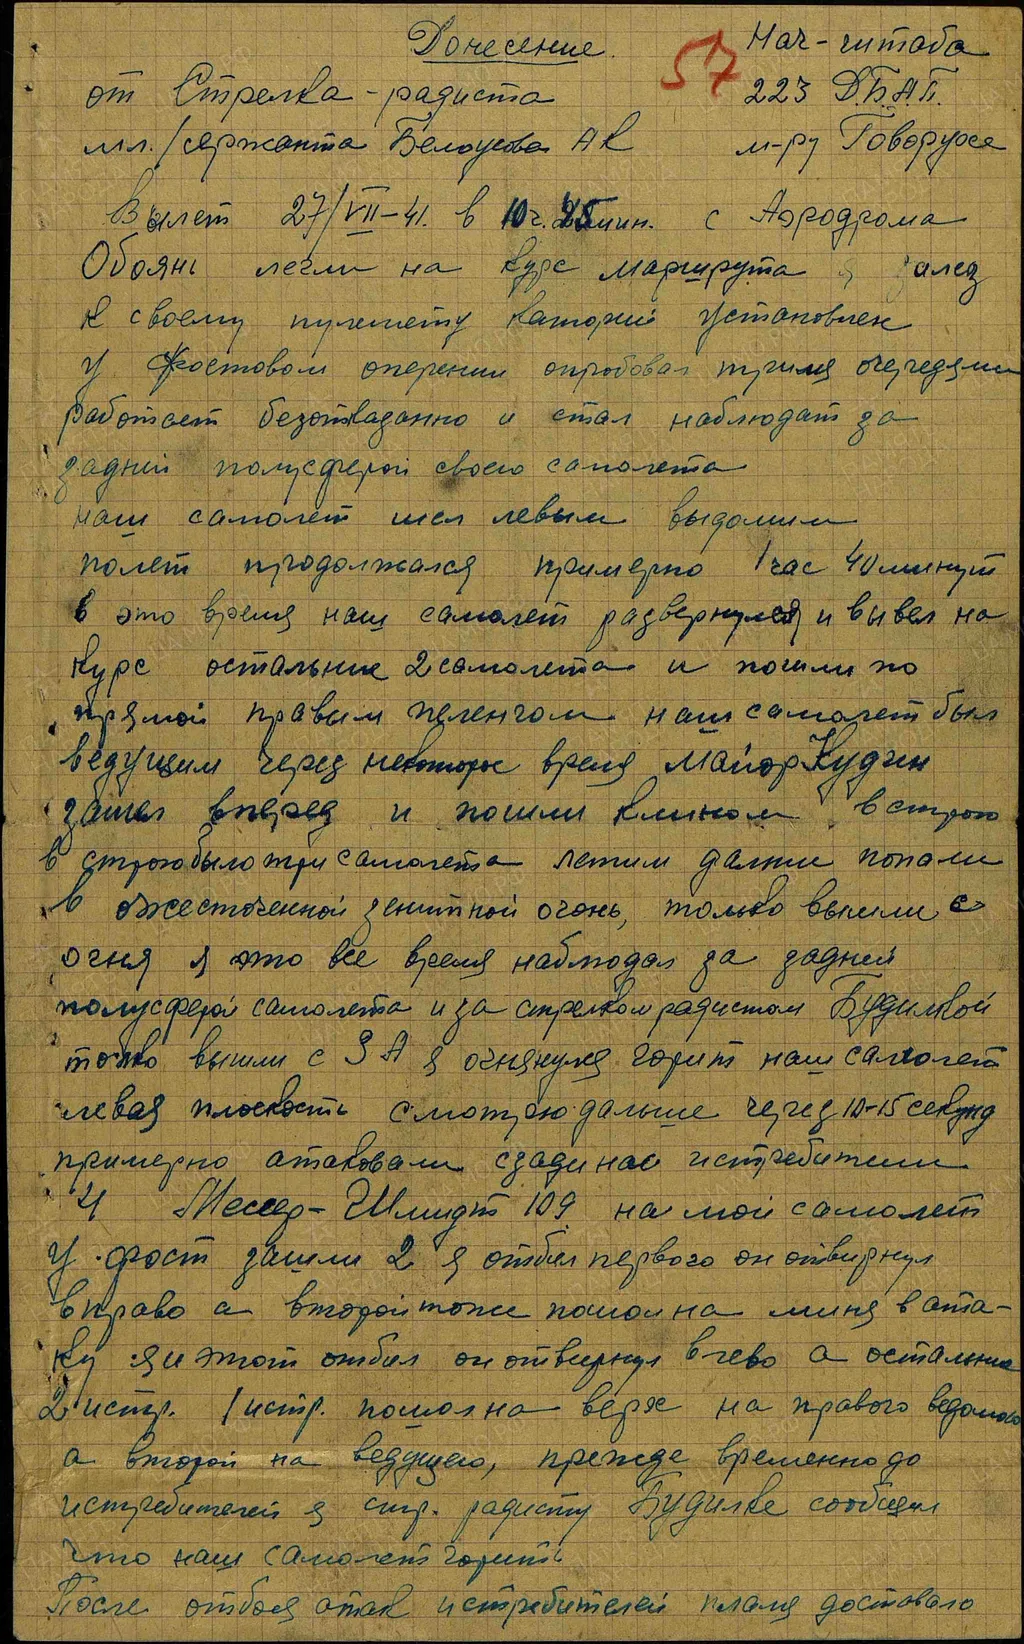 Донесение
57
Нач-штаба
от Стрелка-радиста
223 Д.Б.А.П.
мл./сержанта Белоусова А К
м-ру Говорухе
Вылет 27/VII-41. в 10ч. 25мин. с Аэродрома
Обоянь легли на курс маршрута я залез
к своему пулемету каторый установлен
у фостовом оперении опробовал тремя очередями
работает безотказанно и стал наблюдат за
задней полусферой своего самолета
наш самолет шел левым выдомим
полет продолжался примерно 1 час 40 минут
в это время наш самолет развернулся и вывел на
курс остальние 2 самолета и пошли по
прямой правым пеленгом наш самолет был
ведущим через некоторое время Майор Кудчин
зашел вперед и пошли клином в строю
в строю было три самолета летим далши попали
в ожесточенной зенитной огонь, только вышли с
огня я это все время наблюдал за задней
полусферой самолета и за стрелком радистом Будилкой
толко вышли с ЗА я оглянулся горит наш самолет
левая плоскость смотрю дальше через 10-15 секунд
примерно атаковали сзади нас истребители
4 Мессер-Шмидт 109 на мой самолет
у фост зашли 2 я отбил первого он отвирнул
вправо а второй тоже пошол на миня в ата-
ку я и этот отбил он отвирнул влево а остальние
2 истр. 1 истр. пошол на верх на правого ведомого
а второй на ведущего, прежде временно до
истребителей я стр. радисту Будилке сообщил
что наш самолет горить
После отбоя атак истребителей пламя доставало